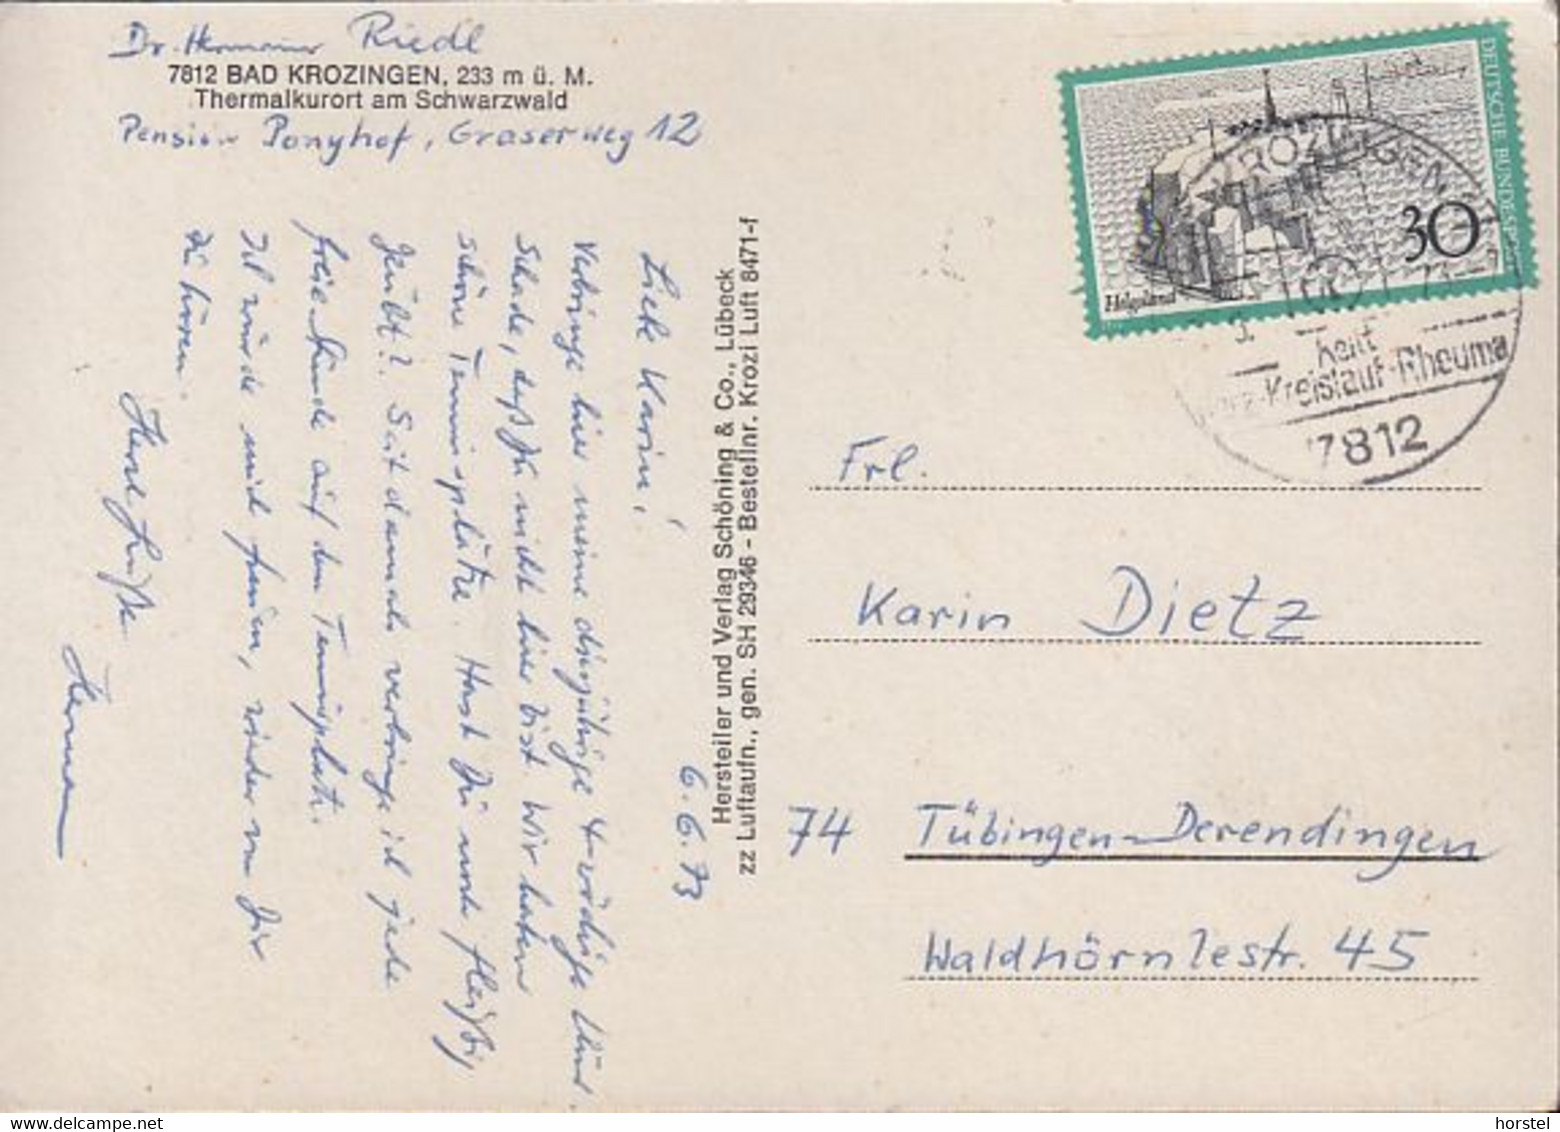 Dr. Hermann Riedl
7812 BAD KROZINGEN, 233 m ü. M.
Thermalkurort am Schwarzwald
Pension Ponyhof, Graserweg 12
6.6.73
Liebe Karin!
Verbringe hier meine diesjährige 4-wöchige Kur.
Schade, daß Du nicht hier bist. Wir haben
schöne Tennisplätze. Hast Du noch fleißig
geübt? Seit damals verbringe ich jede
freie Stunde auf dem Tennisplatz.
Ich würde mich freuen, wieder von Dir
zu hören.
Herzl. Grüße
Hermann
Hersteller und Verlag Schöning & Co., Lübeck
zz Luftaufn., gen. SH 29346 - Bestellnr. Krozi Luft 8471-f
DEUTSCHE BUNDESPOST
30
Helgoland
KROZINGEN
heilt
Herz-Kreislauf-Rheuma
7812
Frl.
Karin Dietz
74 Tübingen-Derendingen
Waldhörnlestr. 45
horstel